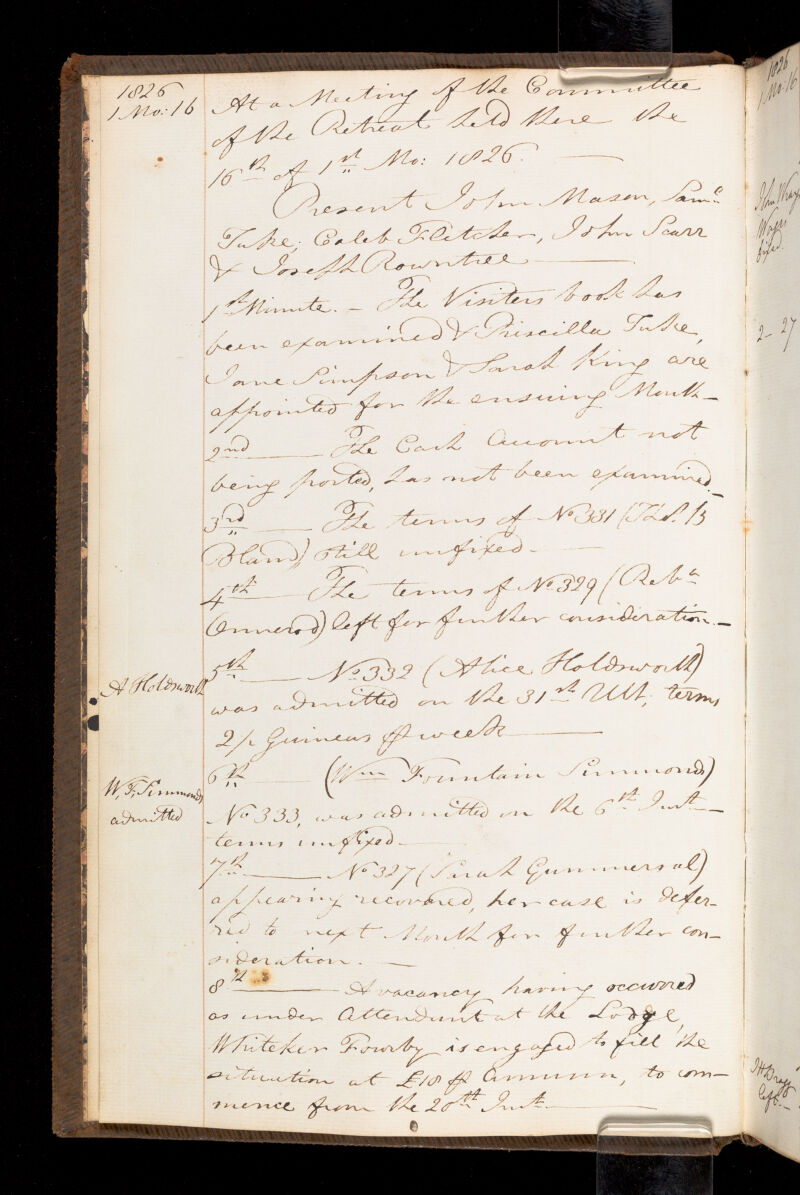 1826
1 Mo: 16
At a Meeting of the Committee
of the Retreat held there the
16th of 1st Mo: 1826.
Present John Mason, Saml
Tuke, Caleb Fletcher, John Scarr
& Joseph Rowntree
1st Minute. – The Visiters book has
been examined & Priscilla Tuke,
Jane Simpson & Sarah King are
appointed for the ensuing Month –
2nd — The Cash Account not
being posted, has not been examined. –
3rd — The terms of No 331 (Thos. B
Bland) still unfixed. –
4th — The terms of No 329 (Reba
Ormerod) left for further consideration. –
A Holdsworth
5th — No 332 (Alice Holdsworth)
was admitted on the 31st Ult; terms
2/ Guineas ⅌ week —
W. F. Simmonds
admitted
6th — (Wm Fountain Simmonds)
No 333, was admitted on the 6th Inst –
terms unfixed –
7th — No 327 (Sarah Gummersal)
appearing recovered, her case is defer-
red to next Month for further con-
sideration. –
8th — A vacancy having occurred
as under Attendant at the Lodge,
Whiteker Fowrby is engaged to fill the
situation at £18 ⅌ Annum, to com-
mence from the 20th Inst —
1826
1 Mo: 16
John Wray
Wages
fixed
2 – 27
left –